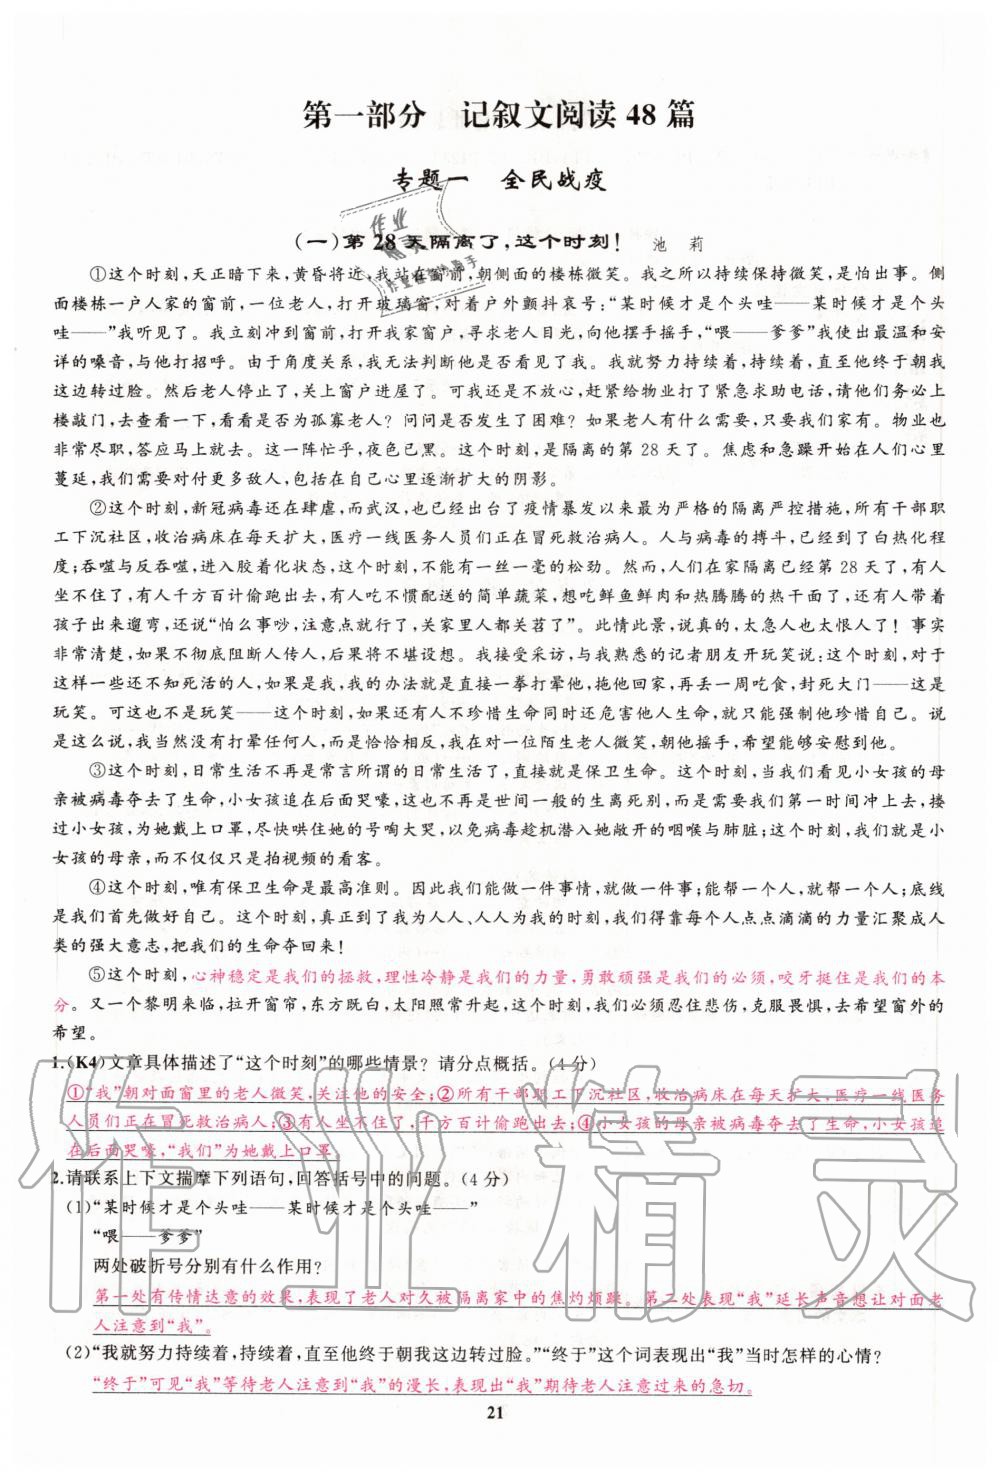 第一部分　记叙文阅读 48 篇
专题一　全民战疫
(一)第 28 天隔离了,这个时刻!　池　莉
①这个时刻,天正暗下来,黄昏将近,我站在窗前,朝侧面的楼栋微笑。我之所以持续保持微笑,是怕出事。侧
面楼栋一户人家的窗前,一位老人,打开玻璃窗,对着户外颤抖哀号:“某时候才是个头哇——某时候才是个头
哇——”我听见了。我立刻冲到窗前,打开我家窗户,寻求老人目光,向他摆手摇手,“喂——爹爹”我使出最温和安
详的嗓音,与他打招呼。由于角度关系,我无法判断他是否看见了我。我就努力持续着,持续着,直至他终于朝我
这边转过脸。然后老人停止了,关上窗户进屋了。可我还是不放心,赶紧给物业打了紧急求助电话,请他们务必上
楼敲门,去查看一下,看看是否为孤寡老人?问问是否发生了困难?如果老人有什么需要,只要我们家有。物业也
非常尽职,答应马上就去。这一阵忙乎,夜色已黑。这个时刻,是隔离的第 28 天了。焦虑和急躁开始在人们心里
蔓延,我们需要对付更多敌人,包括在自己心里逐渐扩大的阴影。
②这个时刻,新冠病毒还在肆虐,而武汉,也已经出台了疫情暴发以来最为严格的隔离严控措施,所有干部职
工下沉社区,收治病床在每天扩大,医疗一线医务人员们正在冒死救治病人。人与病毒的搏斗,已经到了白热化程
度;吞噬与反吞噬,进入胶着化状态,这个时刻,不能有一丝一毫的松劲。然而,人们在家隔离已经第 28 天了,有人
坐不住了,有人千方百计偷跑出去,有人吃不惯配送的简单蔬菜,想吃鲜鱼鲜肉和热腾腾的热干面了,还有人带着
孩子出来遛弯,还说“怕么事吵,注意点就行了,关家里人都关苕了”。此情此景,说真的,太急人也太恨人了!事实
非常清楚,如果不彻底阻断人传人,后果将不堪设想。我接受采访,与我熟悉的记者朋友开玩笑说:这个时刻,对于
这样一些还不知死活的人,如果是我,我的办法就是直接一拳打晕他,拖他回家,再丢一周吃食,封死大门——这是
玩笑。可这也不是玩笑——这个时刻,如果还有人不珍惜生命同时还危害他人生命,就只能强制他珍惜自己。说
是这么说,我当然没有打晕任何人,而是恰恰相反,我在对一位陌生老人微笑,朝他摇手,希望能够安慰到他。
③这个时刻,日常生活不再是常言所谓的日常生活了,直接就是保卫生命。这个时刻,当我们看见小女孩的母
亲被病毒夺去了生命,小女孩追在后面哭嚎,这是再也不能够更惨的生离死别,而是需要我们第一时间冲上去,搂
过小女孩,为她戴上口罩,尽快哄住她的号啕大哭,以免病毒趁机潜入她敞开的咽喉与肺脏;这个时刻,我们就是小
女孩的母亲,而不仅仅只是拍视频的看客。
④这个时刻,唯有保卫生命是最高准则。因此我们能做一件事情,就做一件事情;能帮一个人,就帮一个人;底线
是我们首先做好自己。这个时刻,真正到了我为人人、人人为我的时刻,我们得靠每个人点点滴滴的力量汇聚成人
类的强大意志,把我们的生命夺回来!
⑤这个时刻,心神稳定是我们的拯救,理性冷静是我们的力量,勇敢顽强是我们的必须,咬牙挺住是我们的本
分。又一个黎明来临,拉开窗帘,东方既白,太阳照常升起,这个时刻,我们必须忍住悲伤,克服畏惧,去希望窗外的
希望。
1.(K4)文章具体描述了“这个时刻”的哪些情景?请分点概括。(4 分)
①“我”朝对面窗里的老人微笑,关注他的安全;②所有干部职工下沉社区,收治病床在每天扩大,医疗一线医务
人员们正在冒死救治病人;③有人坐不住了,千方百计偷跑出去;④小女孩的母亲被病毒夺去了生命,小女孩追
在后面哭嚎,“我们”为她戴上口罩
2.请联系上下文揣摩下列语句,回答括号中的问题。(4 分)
(1)“某时候才是个头哇——某时候才是个头哇——”
“喂——爹爹”
两处破折号分别有什么作用?
第一处有传情达意的效果,表现了老人对久被隔离家中的焦灼烦躁。第二处表现“我”延长声音想让对面老
人注意到“我”。
(2)“我就努力持续着,持续着,直至他终于朝我这边转过脸。”“终于”这个词表现出“我”当时怎样的心情?
“终于”可见“我”等待老人注意到“我”的漫长,表现出“我”期待老人注意过来的急切。
21
作业精灵